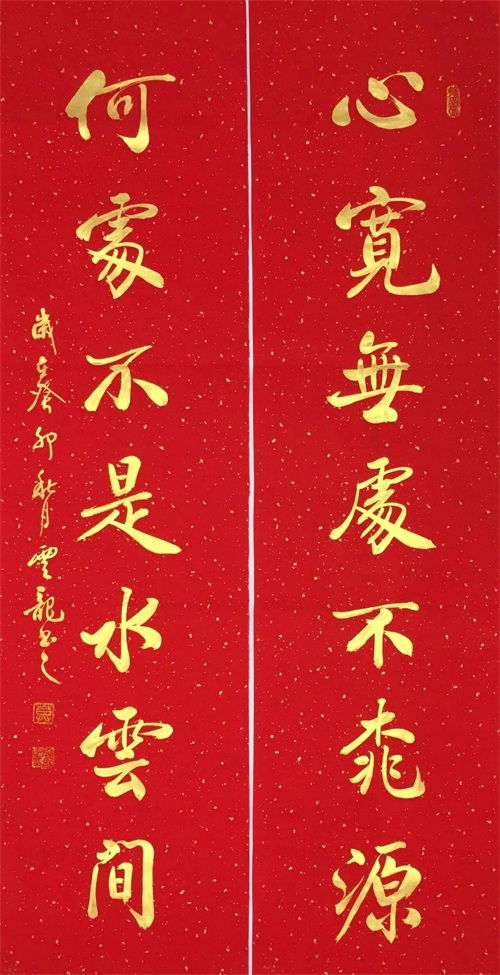 心寬無處不桃源
何處不是水雲間
歲在癸卯秋月雲龍書之